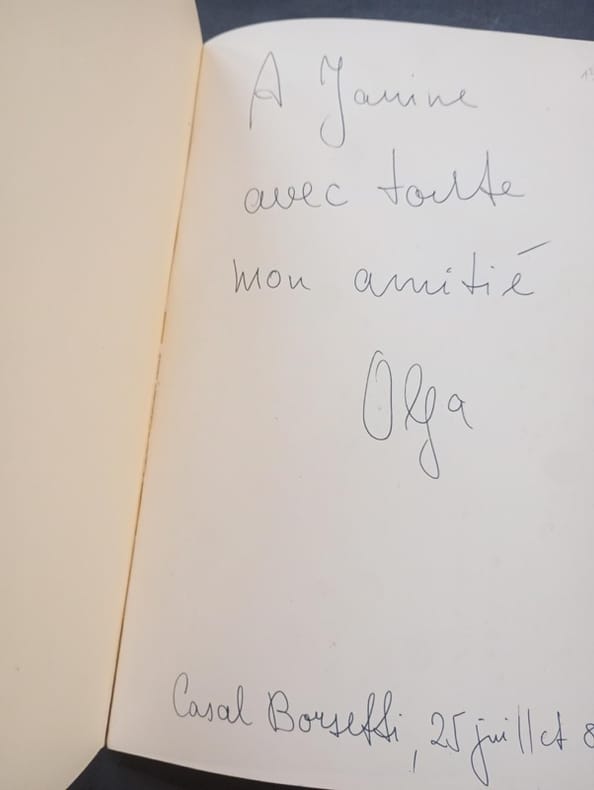 A Janine
avec toute
mon amitié
Olga
Casal Borsetti, 25 juillet 8